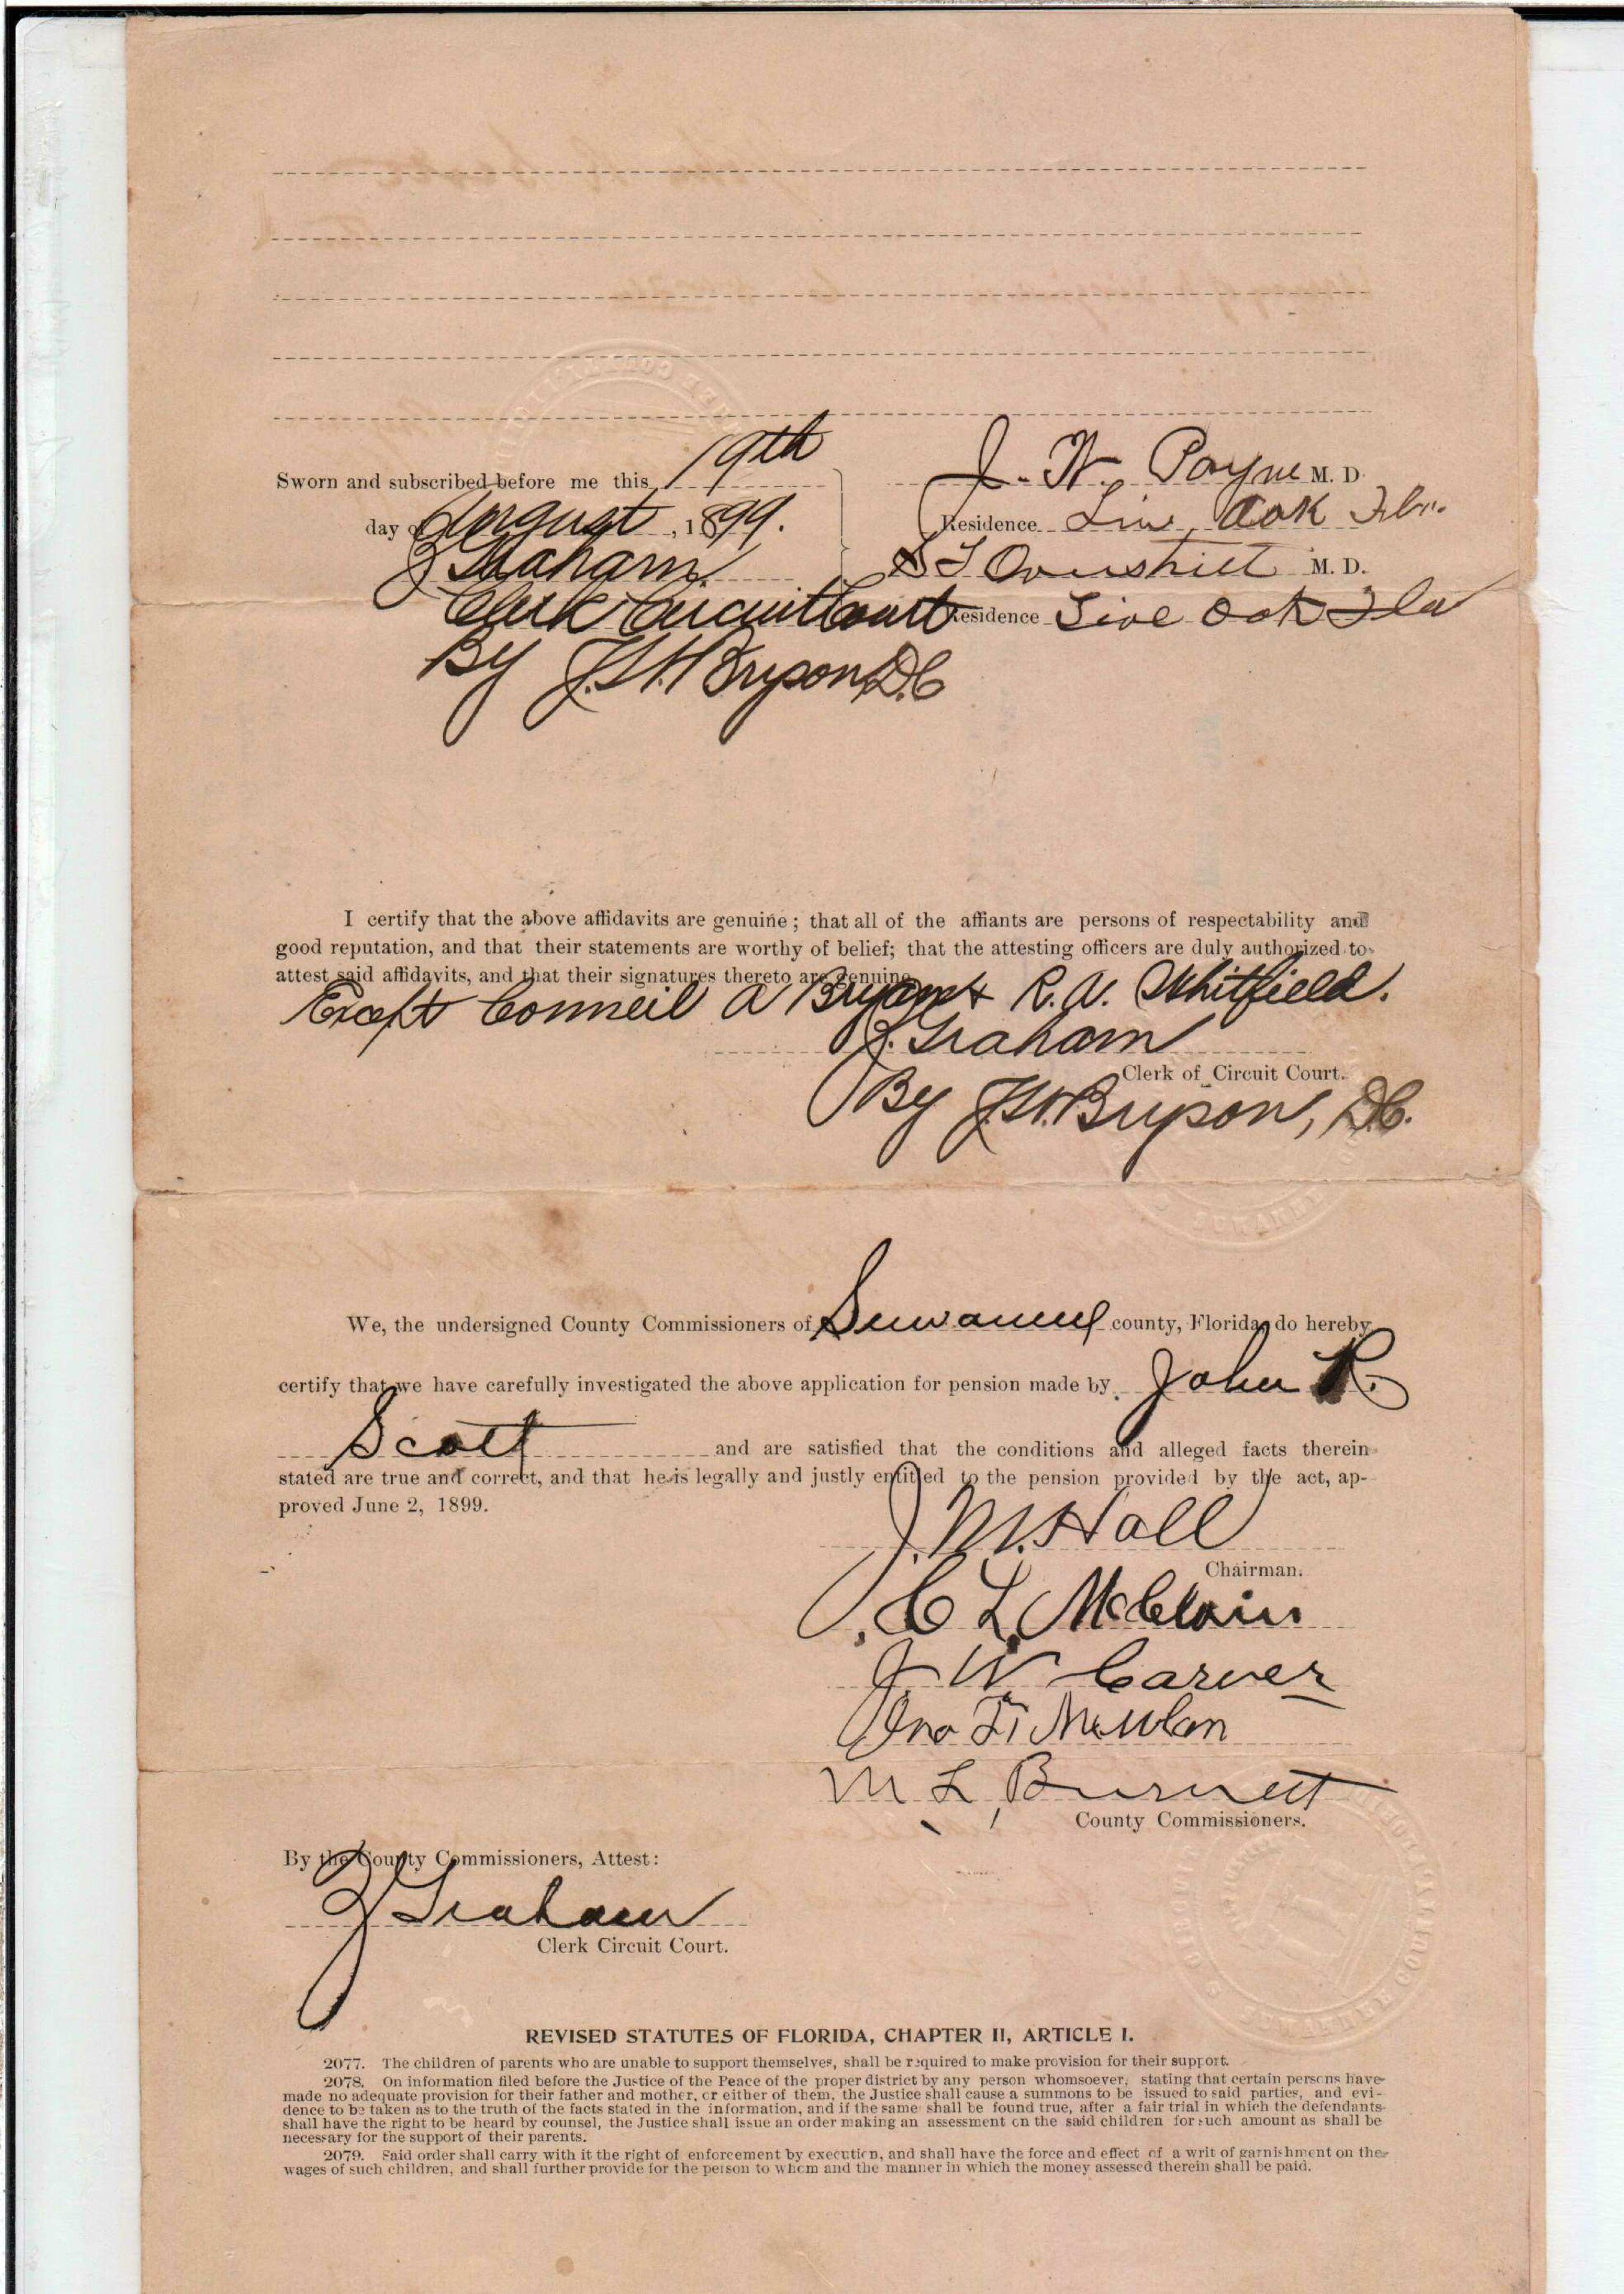 Sworn and subscribed before me this 19th
day of August, 1899.
J. W. Payne M. D.
Residence Live Oak Fla.
M. D.
Residence Live Oak Fla
Graham
Clerk Circuit Court
By Bryson D.C
I certify that the above affidavits are genuine; that all of the affiants are persons of respectability and
good reputation, and that their statements are worthy of belief; that the attesting officers are duly authorized to
attest said affidavits, and that their signatures thereto are genuine
Except Conneil A Bryan & R. W. Whitfield.
Graham
Clerk of Circuit Court.
By Bryson, D.C.
We, the undersigned County Commissioners of Suwannee county, Florida, do hereby
certify that we have carefully investigated the above application for pension made by John R.
Scott and are satisfied that the conditions and alleged facts therein
stated are true and correct, and that he is legally and justly entitled to the pension provided by the act, ap-
proved June 2, 1899.
J. M. Hall
Chairman.
C L McClain
J W Carver
Jno
M L Burnett
County Commissioners.
By the County Commissioners, Attest:
Graham
Clerk Circuit Court.
REVISED STATUTES OF FLORIDA, CHAPTER II, ARTICLE I.
2077. The children of parents who are unable to support themselves, shall be required to make provision for their support.
2078. On information filed before the Justice of the Peace of the proper district by any person whomsoever, stating that certain persons have
made no adequate provision for their father and mother, or either of them, the Justice shall cause a summons to be issued to said parties, and evi-
dence to be taken as to the truth of the facts stated in the information, and if the same shall be found true, after a fair trial in which the defendants
shall have the right to be heard by counsel, the Justice shall issue an order making an assessment on the said children for such amount as shall be
necessary for the support of their parents.
2079. Said order shall carry with it the right of enforcement by execution, and shall have the force and effect of a writ of garnishment on the
wages of such children, and shall further provide for the person to whom and the manner in which the money assessed therein shall be paid.